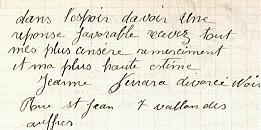 dans l'espoir davoir une
reponse favorable recevez tout
mes plus cinsère remerciment
et ma plus haute estime
Jeanne Ferrara divorcé Noir
Rue st Jean 7 vallon des
auffes